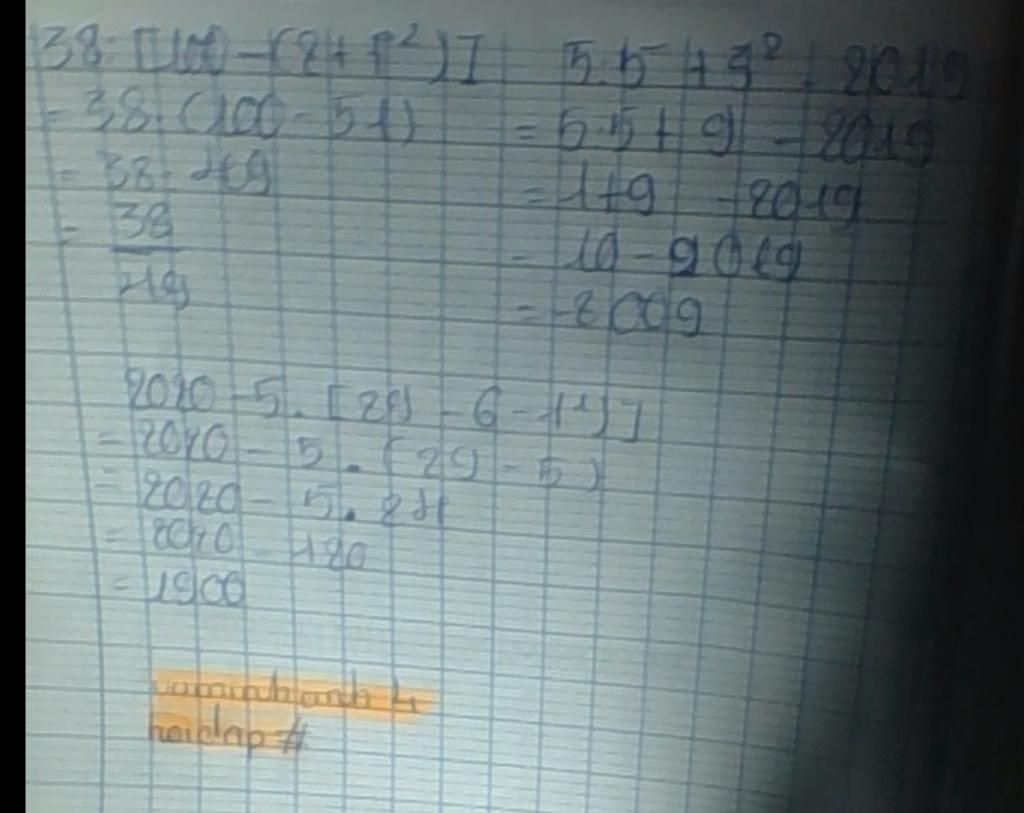 38: [100 - (2 + 7²)]
= 38: (100 - 51)
= 38: 49
= 38
49
5:5 + 3² - 2019
= 5:5 + 9 - 2019
= 1 + 9 - 2019
= 10 - 2019
= -2009
2020 - 5 . [29 - 6 - 1²)]
= 2020 - 5 . (29 - 5)
= 2020 - 5 . 24
= 2020 - 120
= 1900
vominhanh4
hoidap #